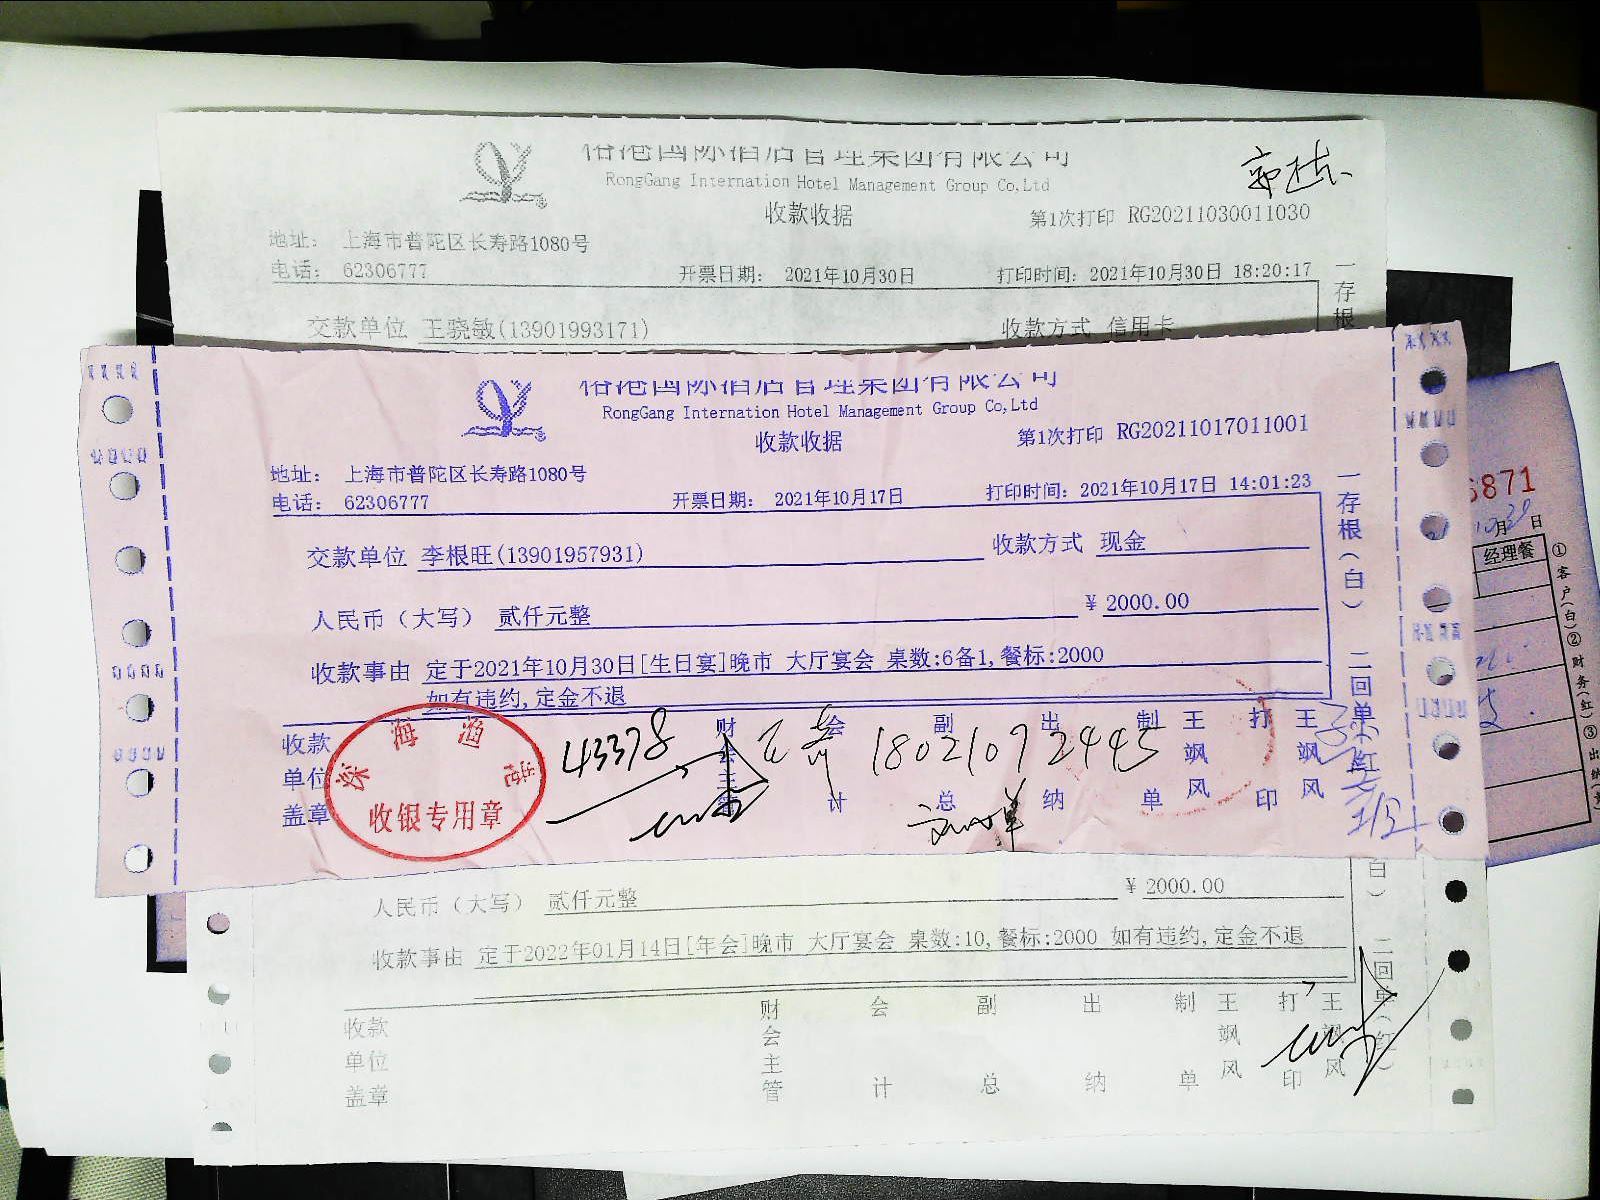 裕港国际酒店管理集团有限公司
RongGang Internation Hotel Management Group Co,Ltd
收款收据
第1次打印 RG20211030011030
地址： 上海市普陀区长寿路1080号
电话： 62306777
开票日期： 2021年10月30日
打印时间：2021年10月30日 18:20:17
交款单位 王骁敏(13901993171)
收款方式 信用卡
一存根
裕港国际酒店管理集团有限公司
RongGang Internation Hotel Management Group Co,Ltd
收款收据
第1次打印 RG20211017011001
地址： 上海市普陀区长寿路1080号
电话： 62306777
开票日期： 2021年10月17日
打印时间：2021年10月17日 14:01:23
交款单位 李根旺(13901957931)
收款方式 现金
人民币（大写） 贰仟元整
¥ 2000.00
收款事由 定于2021年10月30日[生日宴]晚市 大厅宴会 桌数:6备1,餐标:2000
如有违约,定金不退
收款单位盖章
收银专用章
43378
财会主管
会计
副总
18021072445
出纳
制单
王飒风
打印
王飒风
一存根(白)
二回单(红)
6871
月 日
经理餐
①客户(白)②财务(红)③出纳
人民币（大写） 贰仟元整
¥ 2000.00
收款事由 定于2022年01月14日[年会]晚市 大厅宴会 桌数:10,餐标:2000 如有违约,定金不退
收款单位盖章
财会主管
会计
副总
出纳
制单
王飒风
打印
王飒风
白)
二回单(红)